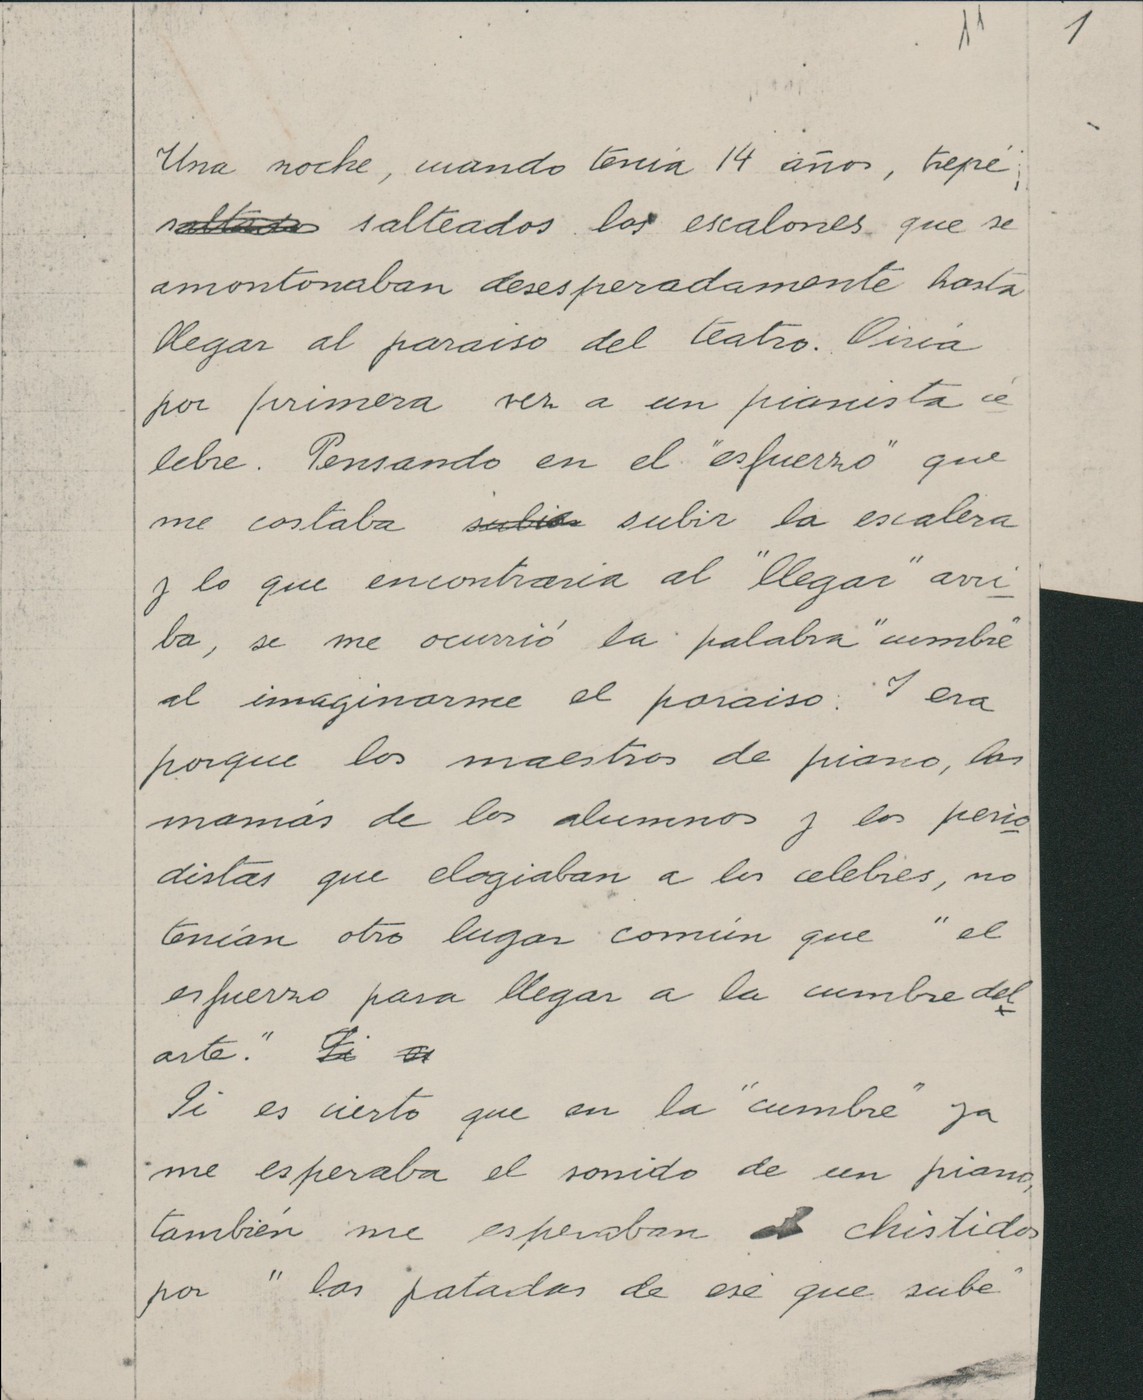 1
Una noche, cuando tenía 14 años, trepé,
salteados los escalones que se
amontonaban desesperadamente hasta
llegar al paraiso del teatro. Oiría
por primera vez a un pianista cé
lebre. Pensando en el "esfuerzo" que
me costaba subir subir la escalera
y lo que encontraría al "llegar" arri
ba, se me ocurrió la palabra "cumbre"
al imaginarme el paraiso. Y era
porque los maestros de piano, las
mamás de los alumnos y los perio
distas que elogiaban a los celebres, no
tenían otro lugar común que "el
esfuerzo para llegar a la cumbre del
arte." Si a
Si es cierto que en la "cumbre" ya
me esperaba el sonido de un piano,
también me esperaban chistidos
por "las patadas de ese que sube"